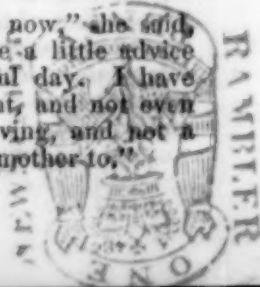 now," she said,
e a little advice
al day. I have
nt, and not even
ving, and not a
mother to."
RAMBLER
NEW
ONE